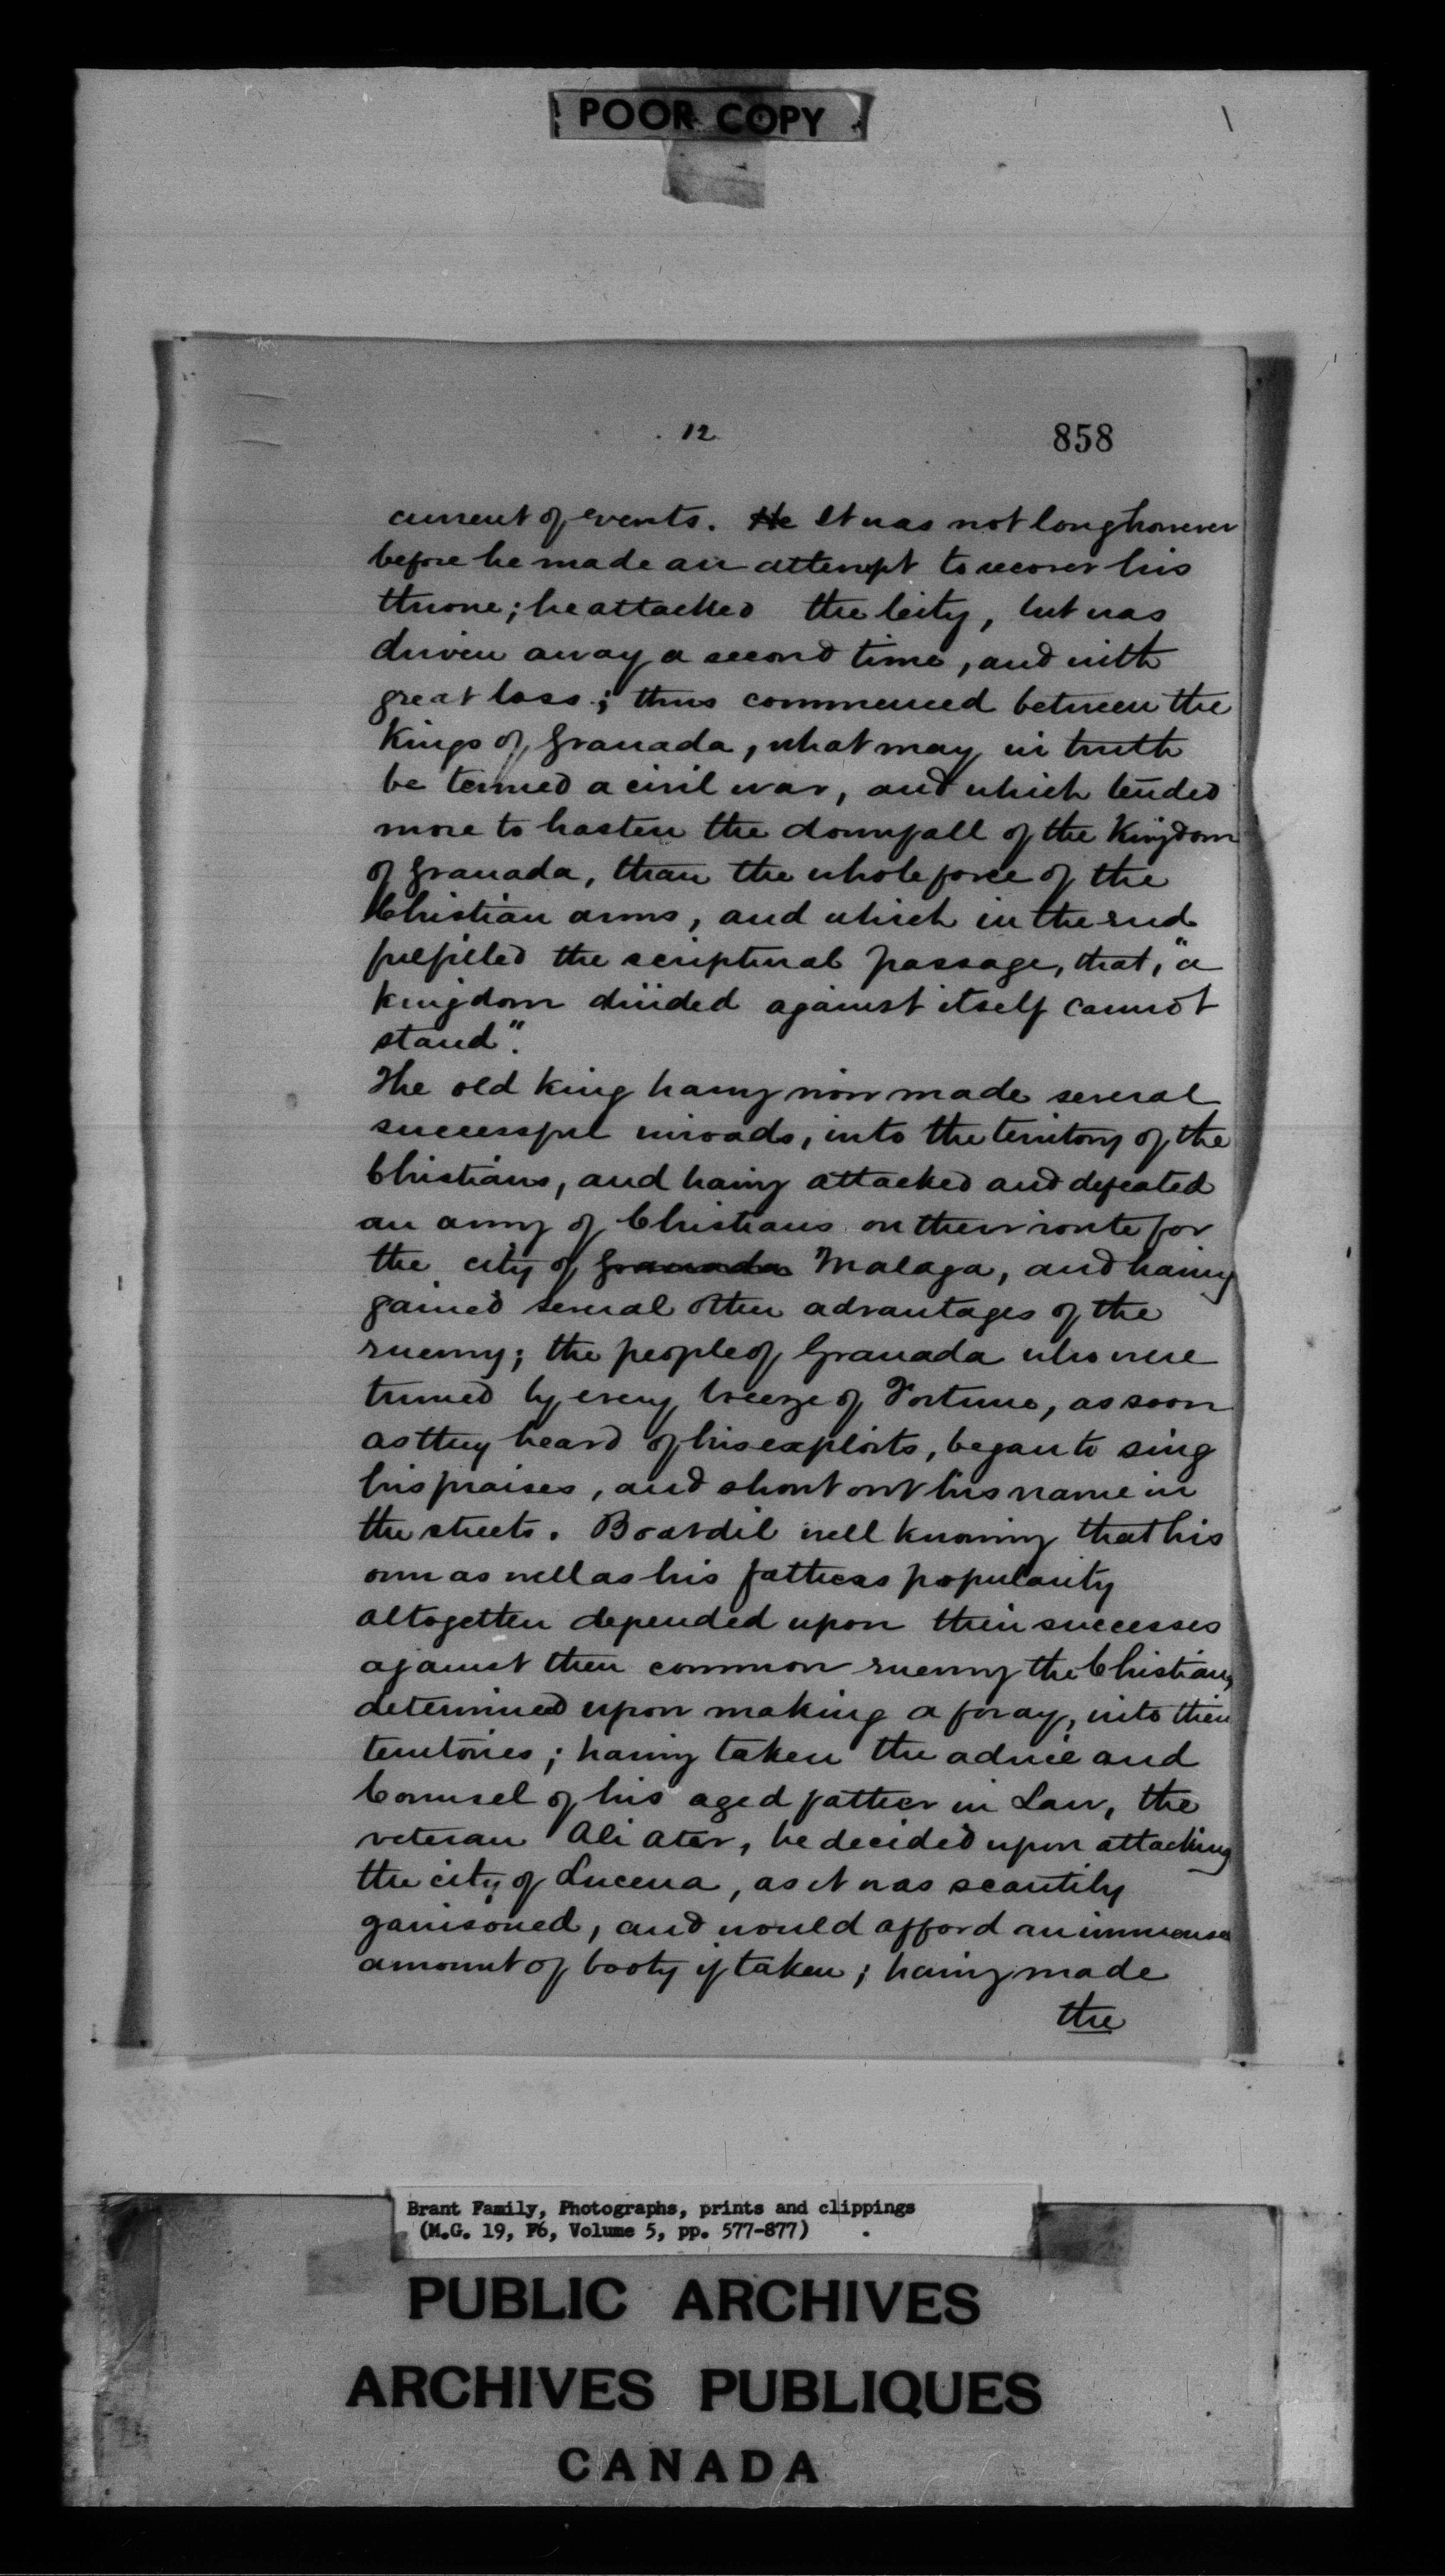 POOR COPY
12
858
current of events. He It was not long however
before he made an attempt to recover his
throne; he attacked the City, but was
driven away a second time, and with
great loss; thus commenced between the
Kings of Granada, what may in truth
be termed a civil war, and which tended
more to hasten the downfall of the Kingdom
of Granada, than the whole force of the
Christian arms, and which in the end
fulfilled the scriptural passage, that, "a
kingdom divided against itself cannot
stand".
The old king having now made several
successful inroads, into the territory of the
Christians, and having attacked and defeated
an army of Christians on their route for
the city of Granada Malaga, and having
gained several other advantages of the
enemy; the people of Granada who were
turned by every breeze of Fortune, as soon
as they heard of his exploits, began to sing
his praises, and shout out his name in
the streets. Boabdil well knowing that his
own as well as his fathers popularity
altogether depended upon their successes
against their common enemy the Christians,
determined upon making a foray, into their
territories; having taken the advice and
Counsel of his aged father in Law, the
veteran Ali Atar, he decided upon attacking
the city of Lucena, as it was scantily
garrisoned, and would afford an immense
amount of booty if taken; having made
the
Brant Family, Photographs, prints and clippings
(M.G. 19, F6, Volume 5, pp. 577-877)
PUBLIC ARCHIVES
ARCHIVES PUBLIQUES
CANADA